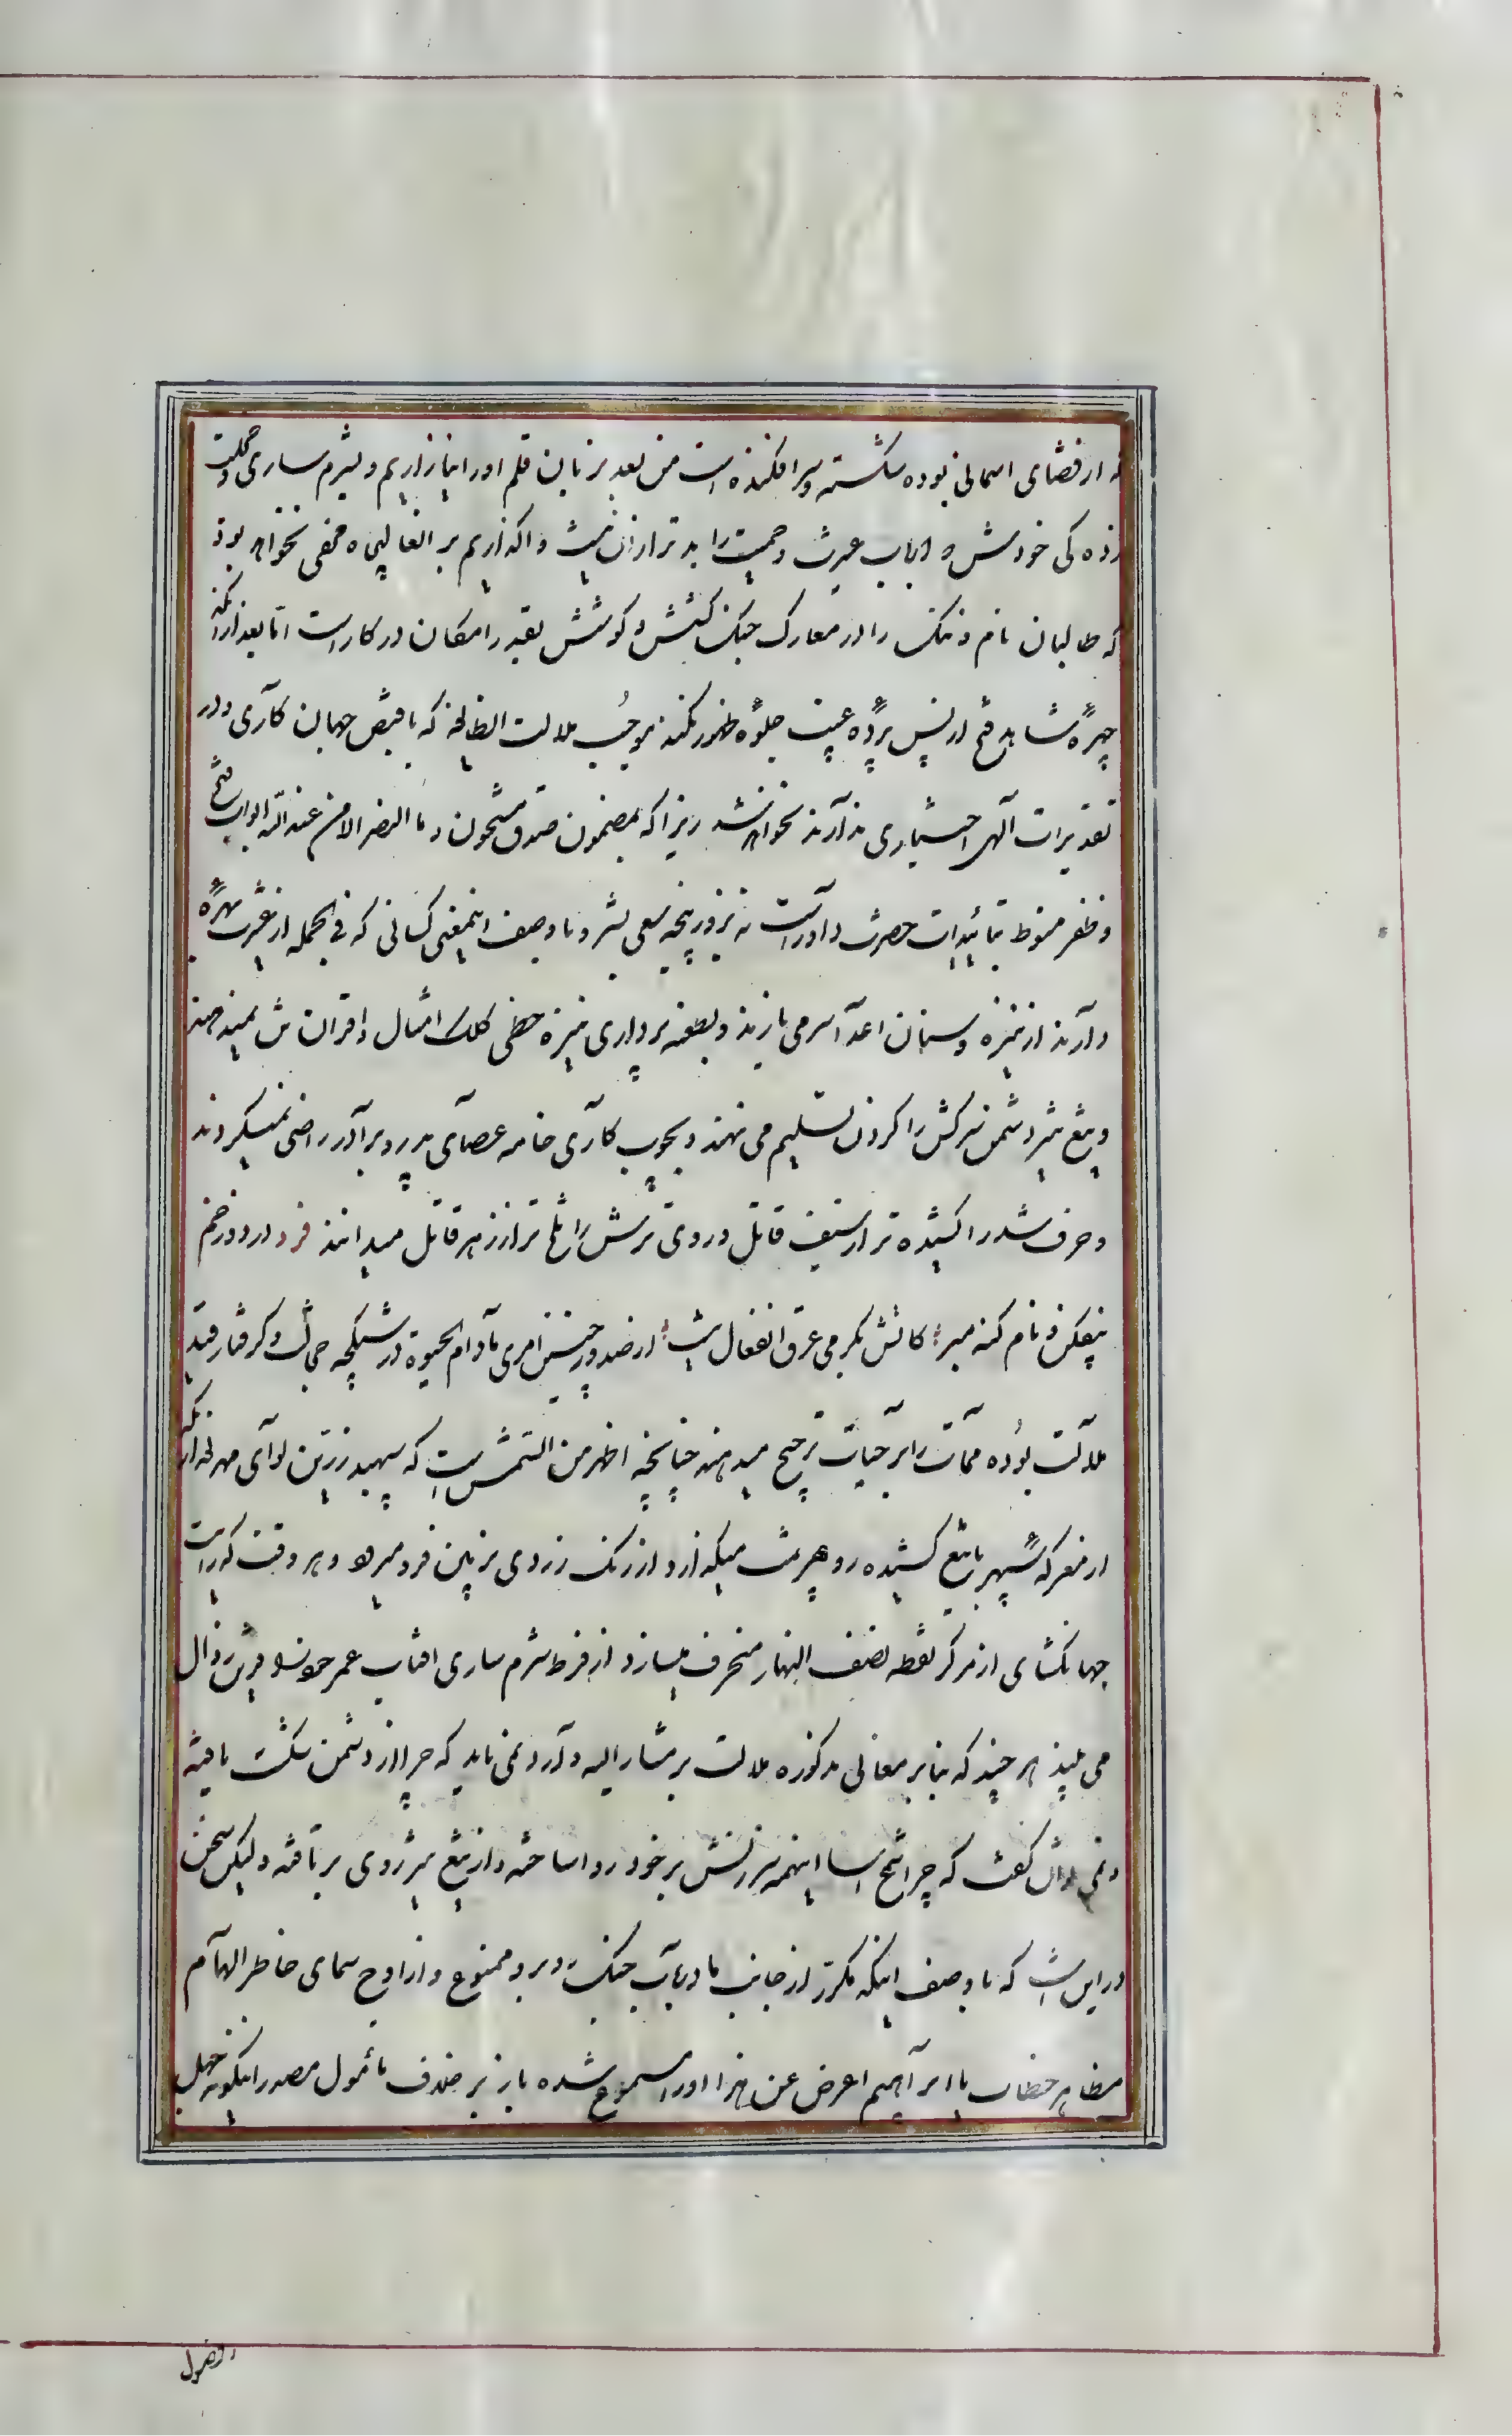 که از قضای اسمانی بوده شکسته و سرافکنده است من بعد بزبان قلم او را نیازاریم و بشرم ساری و خجلت
زده کی خودش و ارباب غیرت و حمیت را بدتر ازان نیست واکذاریم بر انعالیجاه مخفی نخواهد بود
که طالبان نام و ننک را در معارک جنک کشش و کوشش بقدر امکان در کار است اما بعد ازانکه
چهرهٔ شاهد فتح از پس پردهٔ غیب جلوهٔ ظهور نکند موجب ملالت انطایفه که با قبض جهان کاری و در
تقدیرات الهی اختیاری ندارند نخواهد شد زیرا که بمضمون صدق مشحون و ما النصر الا من عند الله ابواب فتح
و ظفر منوط بتائیدات حضرت داور است نه بزور پنجه سعی بشر و با وصف اینمعنی کسانی که فی الجمله از غیرت بهرهٔ
دارند از نیزه و سنان اعدا سر می بازند و بطعنه پردازی نیزه خطی کلک امثال و اقران تن نمیدهند
و تیغ تیز دشمن سرکش را کردن تسلیم می نهند و بچوب کاری خامه عصای پدر و برادر راضی نمیکردند
و حرف تند را کشیده تر از سیف قاتل و روی ترش را تلخ تر از زهر قاتل میدانند فرد درد و زخم
بیفکن و نام کنه مبر کاتش بکرمی عرق انفعال نیست از صدور چنین امری مادام الحیوة در شکنجه خجالت و کرفتار قید
ملالت بوده ممات را بر حیات ترجیح میدهند چنانچه اظهر من الشمس است که سپهبد زرین لوای مهر
از معرکه سپهر با تیغ کشیده رو بهزیمت میکذارد از رنک زردی بزمین فرو میرود و هر وقت که رایت
جهانکشای از مرکز نقطه نصف النهار منحرف میسازد از فرط شرم ساری افتاب عمر خود را قرین زوال
می بیند هر چند که بنابر معانی مذکوره ملالت بر مشار الیه وارد نمی اید که چرا از دشمن شکست یافته
و نمی توان کفت که چرا اینهمه سرزنش بر خود روا ساخته و از تیغ تیز روی بر تافته و لیکن سخن
در این است که با وصف اینکه مکرر از جانب ما در باب جنک روبرو ممنوع و از اوج سمای خاطر الهام
مظاهر خطاب یا ابراهیم اعرض عن هذا او را مسموع شده باز بر خلاف مأمول مصدر اینکونه جهل
و فضول